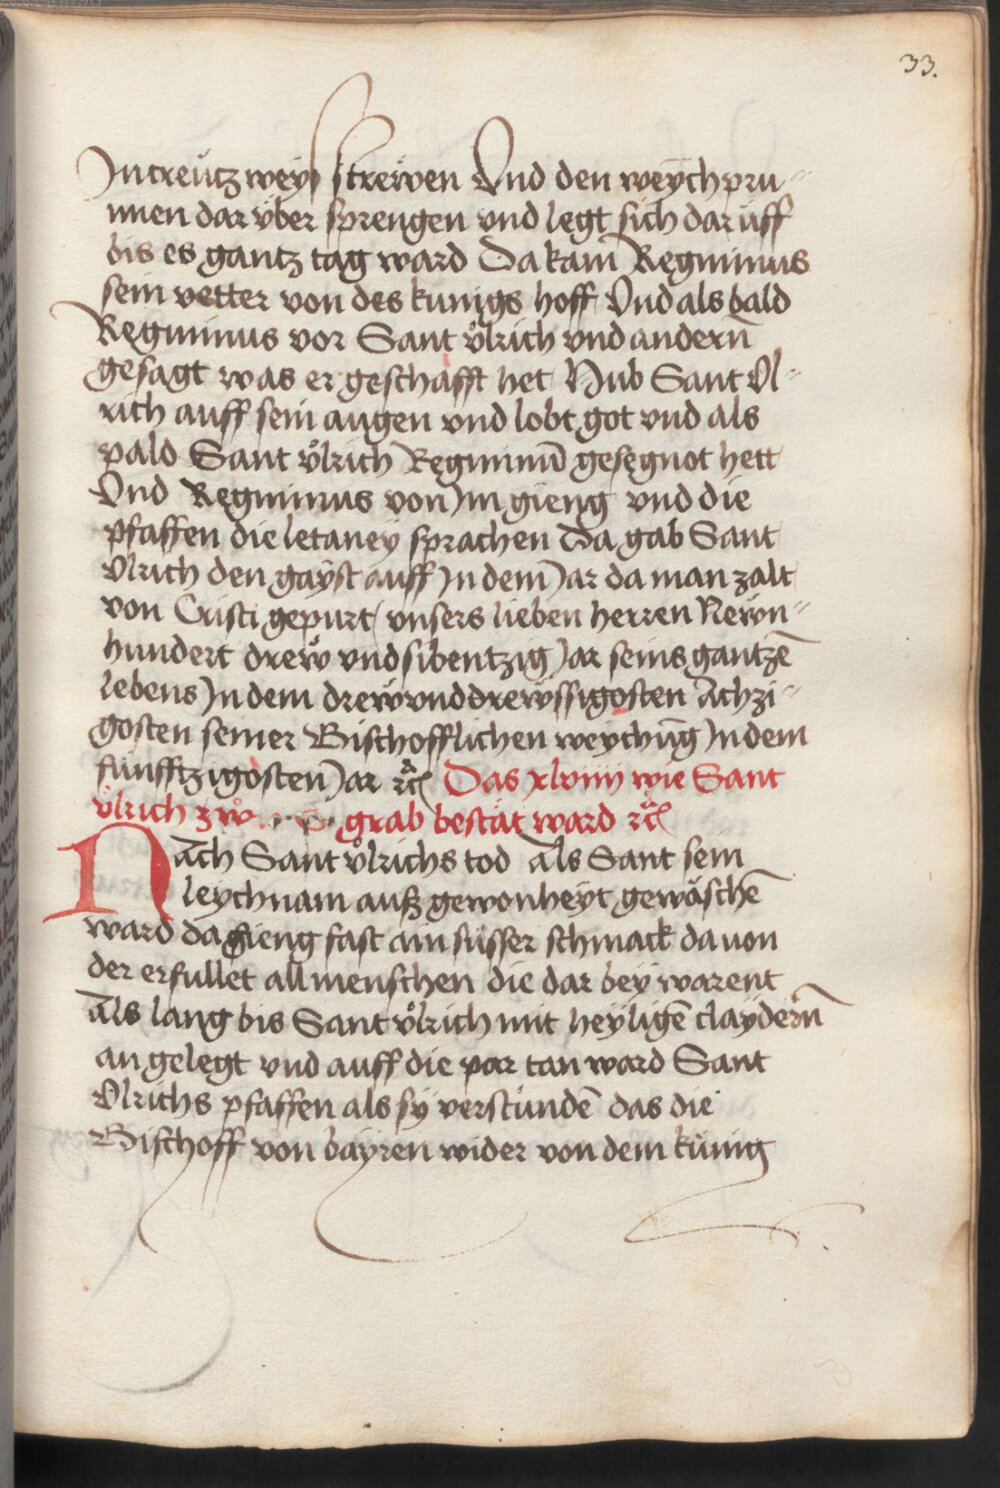 33.
In creütz weyß strewen Vnd den weychpru-
nnen dar vber sprengen vnd legt sich darüff
bis es gantz tag ward Da kam Regminus
sein vetter von des kunigs hoff Vnd als bald
Regminus vor Sant vͦlrich vnd andern̄
gesagt was er geschafft het Hub Sant Vl-
rich auff sein augen vnd lobt got vnd als
pald Sant vͦlrich Regminū gesegnot hett
Vnd Regminus von Im gieng vnd die
pfaffen die letaney sprachen Da gab Sant
Vlrich den gayst auff In dem Jar da man zalt
von Cristi gepurt vnsers lieben herren Newn-
hundert drew vnd sibentzig Jar seins gantzē
lebens In dem drew vnd drewssigosten Achzi-
gosten seiner Bischofflichen weychūg In dem
funfftzigosten Jar ꝛc̄ Das xlviiij wie Sant
vͦlrich zw grab bestät ward ꝛc̄
Nach Sant vͦlrichs tod Als Sant sein
leychnam auß gewonheyt gewäschē
ward da gieng fast ain süsser schmack dauon
der erfullet all menschen die dar bey warent
Als lang bis Sant vͦlrich mit heyligē claydern̄
an gelegt vnd auff die par tan ward Sant
Vlrichs pfaffen als sy verstündē das die
Bischoff von bayren wider von dem künig